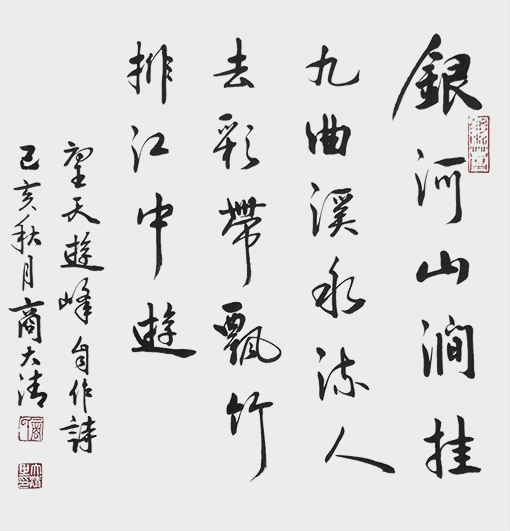 銀河山澗挂
九曲溪水流人
去彩帶飄竹
排江中遊
望天遊峰自作詩
己亥秋月商大清